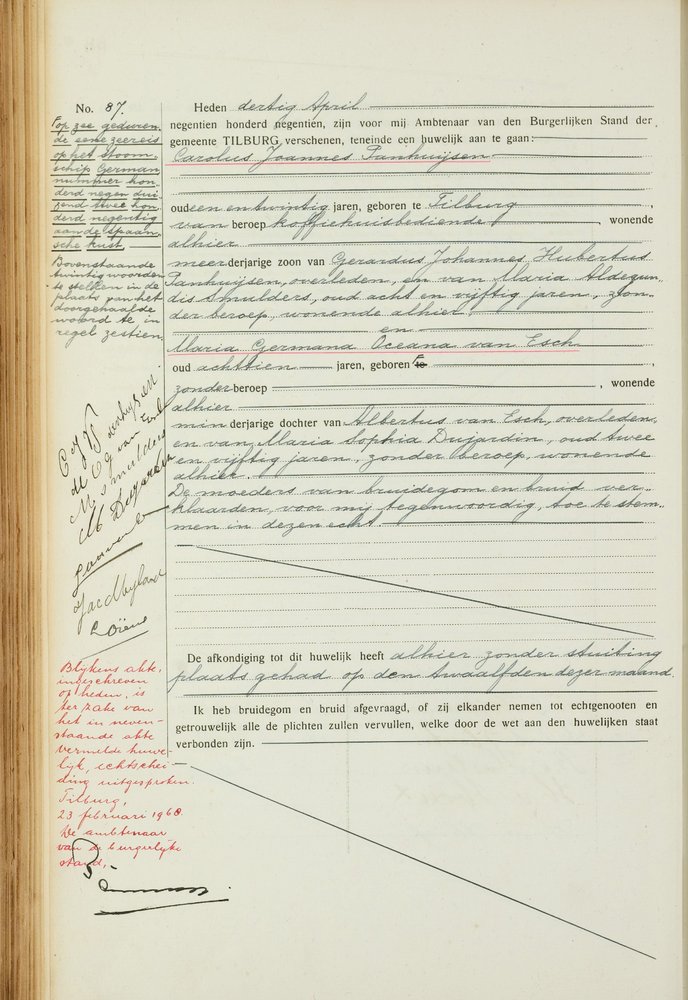 No. 87.
op zee geduren
de eene zeereis
op het stoom-
schip German
nummer hon-
derd negen dui-
zend twee hon
derd negentig
aan de Spaan-
sche kust
Bovenstaande
twintig woorden
te stellen in de
plaats van het
doorgehaalde
woord te in
regel zestien.
Heden dertig April
negentien honderd negentien, zijn voor mij Ambtenaar van den Burgerlijken Stand der
gemeente TILBURG, verschenen, teneinde een huwelijk aan te gaan:
Carolus Joannes Panhuijsen
oud een en twintig jaren, geboren te Tilburg,
van beroep koffiehuisbediende, wonende
alhier
meerderjarige zoon van Gerardus Johannes Hubertus
Panhuijsen, overleden, en van Maria Aldegun-
dis Smulders, oud acht en vijftig jaren, zon-
der beroep, wonende alhier,
en
Maria Germana Oceana van Esch
oud achttien jaren, geboren te,
zonder beroep, wonende
alhier
minderjarige dochter van Albertus van Esch, overleden,
en van Maria Sophia Dujardin, oud twee
en vijftig jaren, zonder beroep, wonende
alhier.
De moeders van bruidegom en bruid ver-
klaarden, voor mij tegenwoordig, toe te stem-
men in dezen echt.
M O G van Esch
M Smulders
M Dujardin
De afkondiging tot dit huwelijk heeft alhier zonder stuiting
plaats gehad op den twaalfden dezer maand.
Ik heb bruidegom en bruid afgevraagd, of zij elkander nemen tot echtgenooten en
getrouwelijk alle de plichten zullen vervullen, welke door de wet aan den huwelijken staat
verbonden zijn.
Blijkens akte,
ingeschreven
op heden, is
ter zake van
het in neven-
staande akte
vermelde huwe-
lijk, echtschei-
ding uitgesproken.
Tilburg,
23 februari 1968.
De ambtenaar
van de burgerlijke
stand,